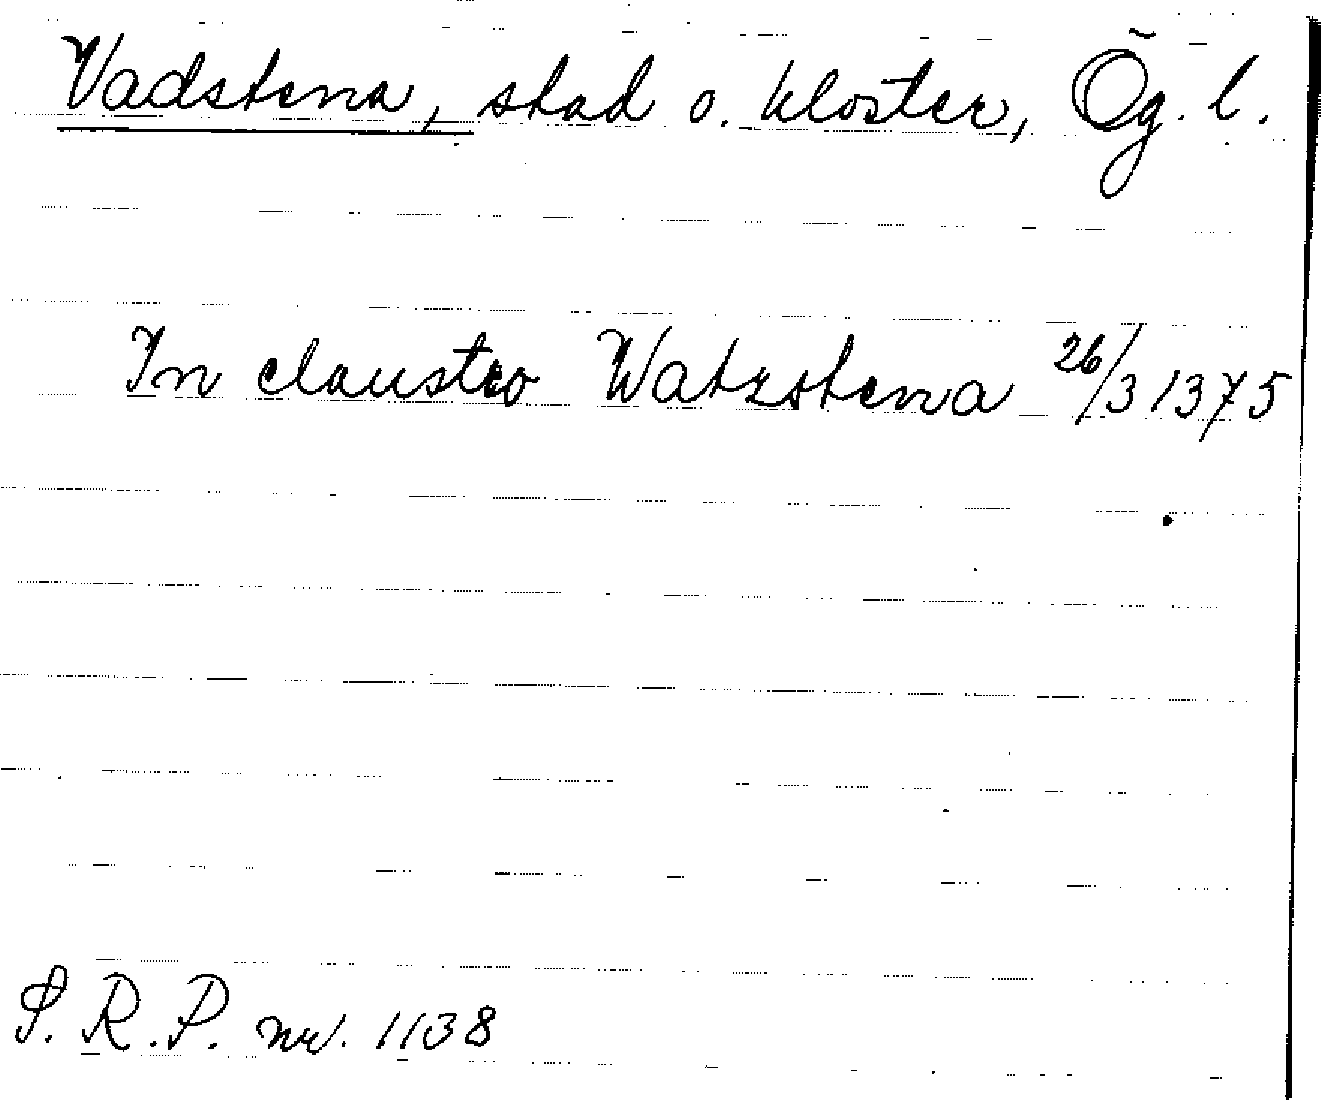 Vadstena, stad o. kloster, Ög. l.
In claustro Watzstena 26/3 1375
S. R. P. nr. 1138